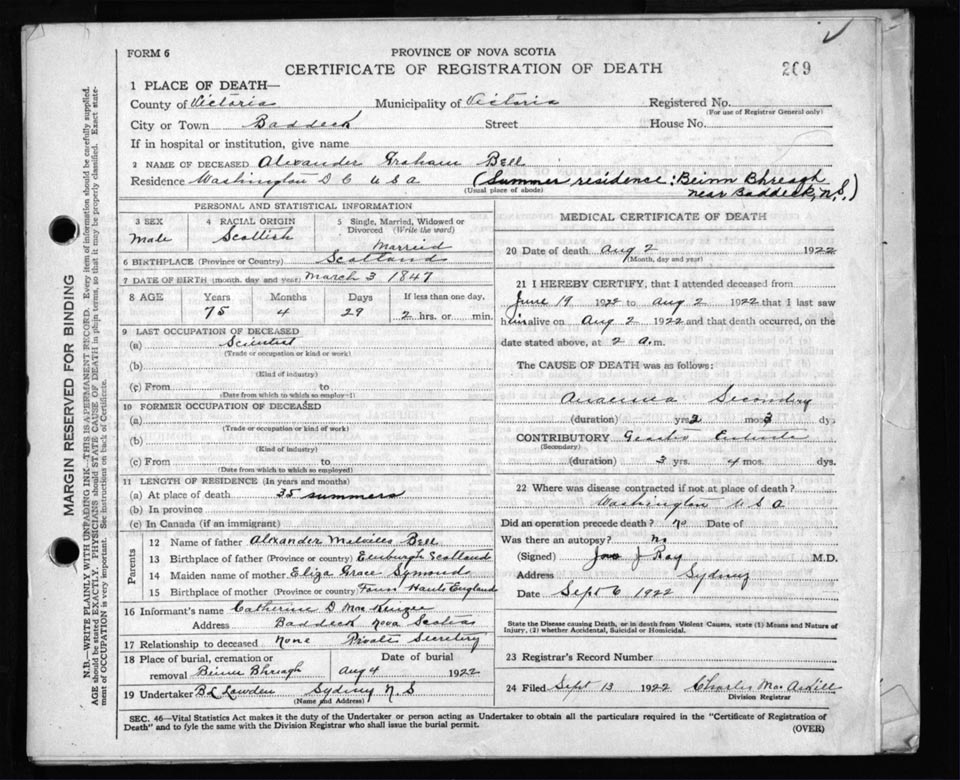 FORM 6
PROVINCE OF NOVA SCOTIA
CERTIFICATE OF REGISTRATION OF DEATH
209
1 PLACE OF DEATH—
County of Victoria Municipality of Victoria Registered No.
(For use of Registrar General only)
City or Town Baddeck Street House No.
If in hospital or institution, give name
2 NAME OF DECEASED Alexander Graham Bell
Residence Washington D C U S A (Summer residence: Beinn Bhreagh
(Usual place of abode) near Baddeck, N.S.)
PERSONAL AND STATISTICAL INFORMATION
3 SEX 4 RACIAL ORIGIN 5 Single, Married, Widowed or
Divorced (Write the word)
Male Scottish Married
6 BIRTHPLACE (Province or Country) Scotland
7 DATE OF BIRTH (month, day and year) March 3 1847
8 AGE Years Months Days If less than one day,
75 4 29 2 hrs. or min.
9 LAST OCCUPATION OF DECEASED
(a) Scientist
(Trade or occupation or kind of work)
(b)
(Kind of industry)
(c) From to
(Date from which to which so employed)
10 FORMER OCCUPATION OF DECEASED
(a)
(Trade or occupation or kind of work)
(b)
(Kind of industry)
(c) From to
(Date from which to which so employed)
11 LENGTH OF RESIDENCE (In years and months)
(a) At place of death 35 summers
(b) In province
(c) In Canada (if an immigrant)
Parents
12 Name of father Alexander Melville Bell
13 Birthplace of father (Province or country) Edinburgh Scotland
14 Maiden name of mother Eliza Grace Symonds
15 Birthplace of mother (Province or country) Hants England
16 Informant's name Catherine D MacKenzie
Address Baddeck Nova Scotia
17 Relationship to deceased None Private Secretary
18 Place of burial, cremation or Date of burial
removal Beinn Bhreagh Aug 4 1922
19 Undertaker B L Lowden Sydney N S
(Name and Address)
MEDICAL CERTIFICATE OF DEATH
20 Date of death Aug 2 1922
(Month, day and year)
21 I HEREBY CERTIFY, that I attended deceased from
June 19 1922 to Aug 2 1922 that I last saw
him alive on Aug 2 1922 and that death occurred, on the
date stated above, at 2 a.m.
The CAUSE OF DEATH was as follows:
Anaemia Secondary
(duration) yrs mos 3 dys
CONTRIBUTORY
(Secondary)
(duration) 3 yrs. 4 mos. dys.
22 Where was disease contracted if not at place of death?
Washington U S A
Did an operation precede death? No Date of
Was there an autopsy? No
(Signed) J Roy M.D.
Address Sydney
Date Sept 6 1922
State the Disease causing Death, or in death from Violent Causes, state (1) Means and Nature of
Injury, (2) whether Accidental, Suicidal or Homicidal.
23 Registrar's Record Number
24 Filed Sept 13 1922 Charles MacAskill
Division Registrar
SEC. 46—Vital Statistics Act makes it the duty of the Undertaker or person acting as Undertaker to obtain all the particulars required in the "Certificate of Registration of
Death" and to fyle the same with the Division Registrar who shall issue the burial permit.
(OVER)
MARGIN RESERVED FOR BINDING
N.B.—WRITE PLAINLY WITH UNFADING INK—THIS IS A PERMANENT RECORD. Every item of information should be carefully supplied.
AGE should be stated EXACTLY. PHYSICIANS should STATE CAUSE OF DEATH in plain terms, so that it may be properly classified. Exact state-
ment of OCCUPATION is very important. See instructions on back of Certificate.